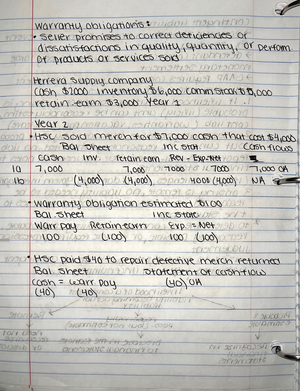 Warranty obligations:
• Seller promises to correct deficiencies or
dissatisfactions in quality, quantity, or perform
of products or services sold
Herrera Supply company
Cash $2000 inventory $6,000 comm stock $5,000
retain earn $3,000 Year 1
Year 2
• HSC sold merch for $7,000 cash that cost $4,000
Bal sheet inc stat Cash flows
Cash inv. retain earn Rev - Exp = Net
1a 7,000 7,000 7000 7000 7,000 OA
1b (4,000) (4,000) 4000 (4,000) NA
• Warranty obligation estimated $100
Bal. sheet inc state
Warr. pay Retain earn Exp = Net
100 (100) 100 (100)
• HSC paid $40 to repair defective merch returned
Bal sheet Statement of cash flow
cash = warr. pay (40) OA
(40) (40)